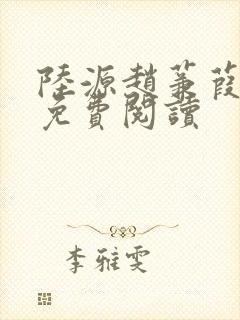 陸源趙蒹葭
免費閱讀
李雅雯